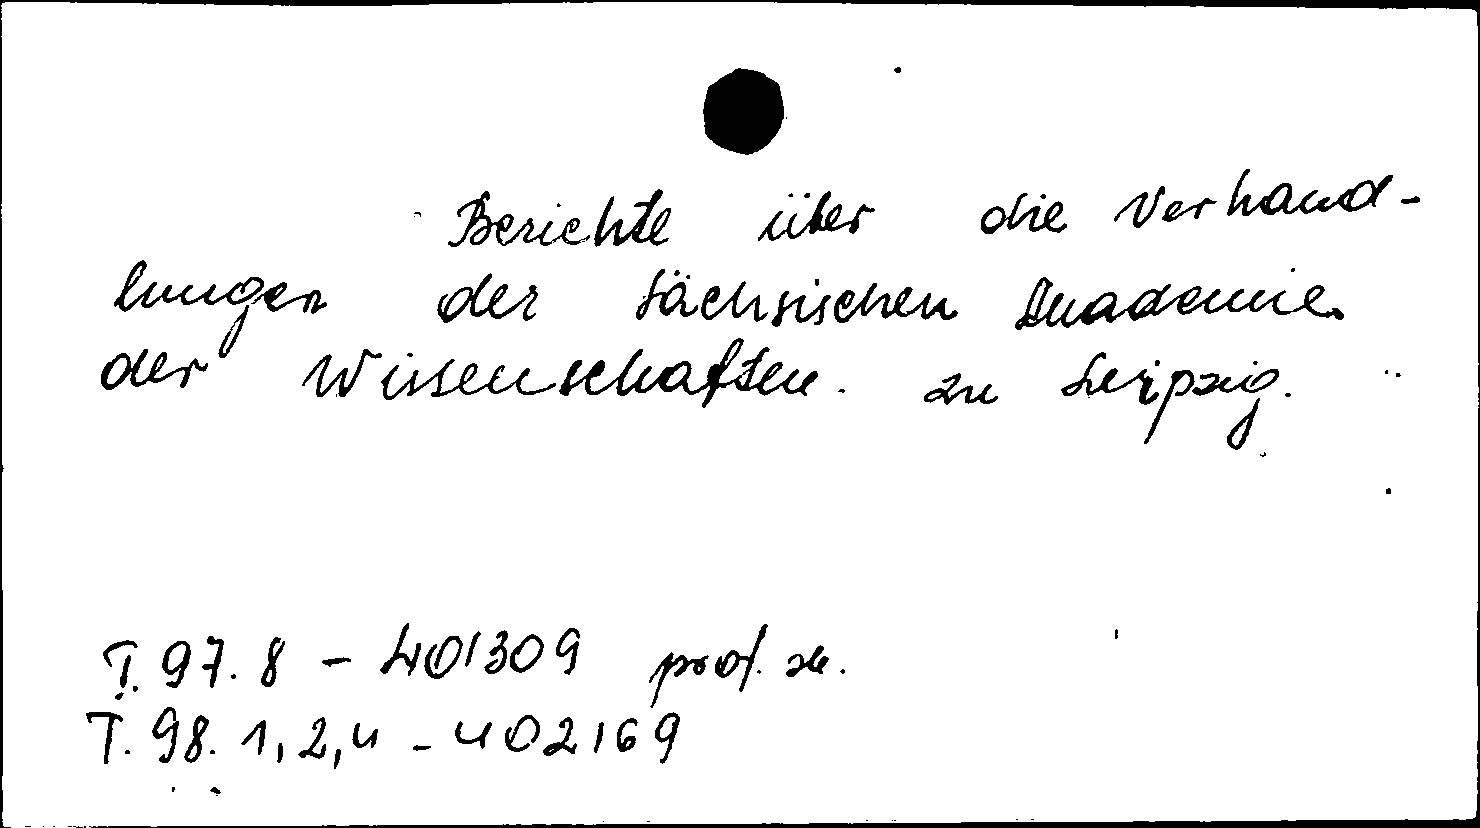 Berichte über die Verhand-
lungen der Sächsischen Akademie
der Wissenschaften zu Leipzig.
T. 97. 8 - 401309 prof.
T. 98. 1, 2, 4 - 402169